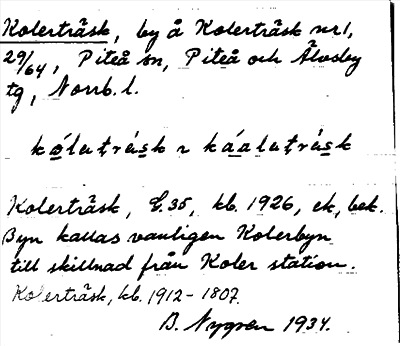 Kolerträsk, by å Kolerträsk nr 1,
29/64, Piteå sn, Piteå och Älvsby
tg, Norrb. l.
kǿlatrásk ~ káalatrásk
Kolerträsk, E. 35, kb. 1926, ek., bek.
Byn kallas vanligen Kolerbyn
till skillnad från Koler station.
Kolerträsk, kb. 1912-1807.
B. Nygren 1934.